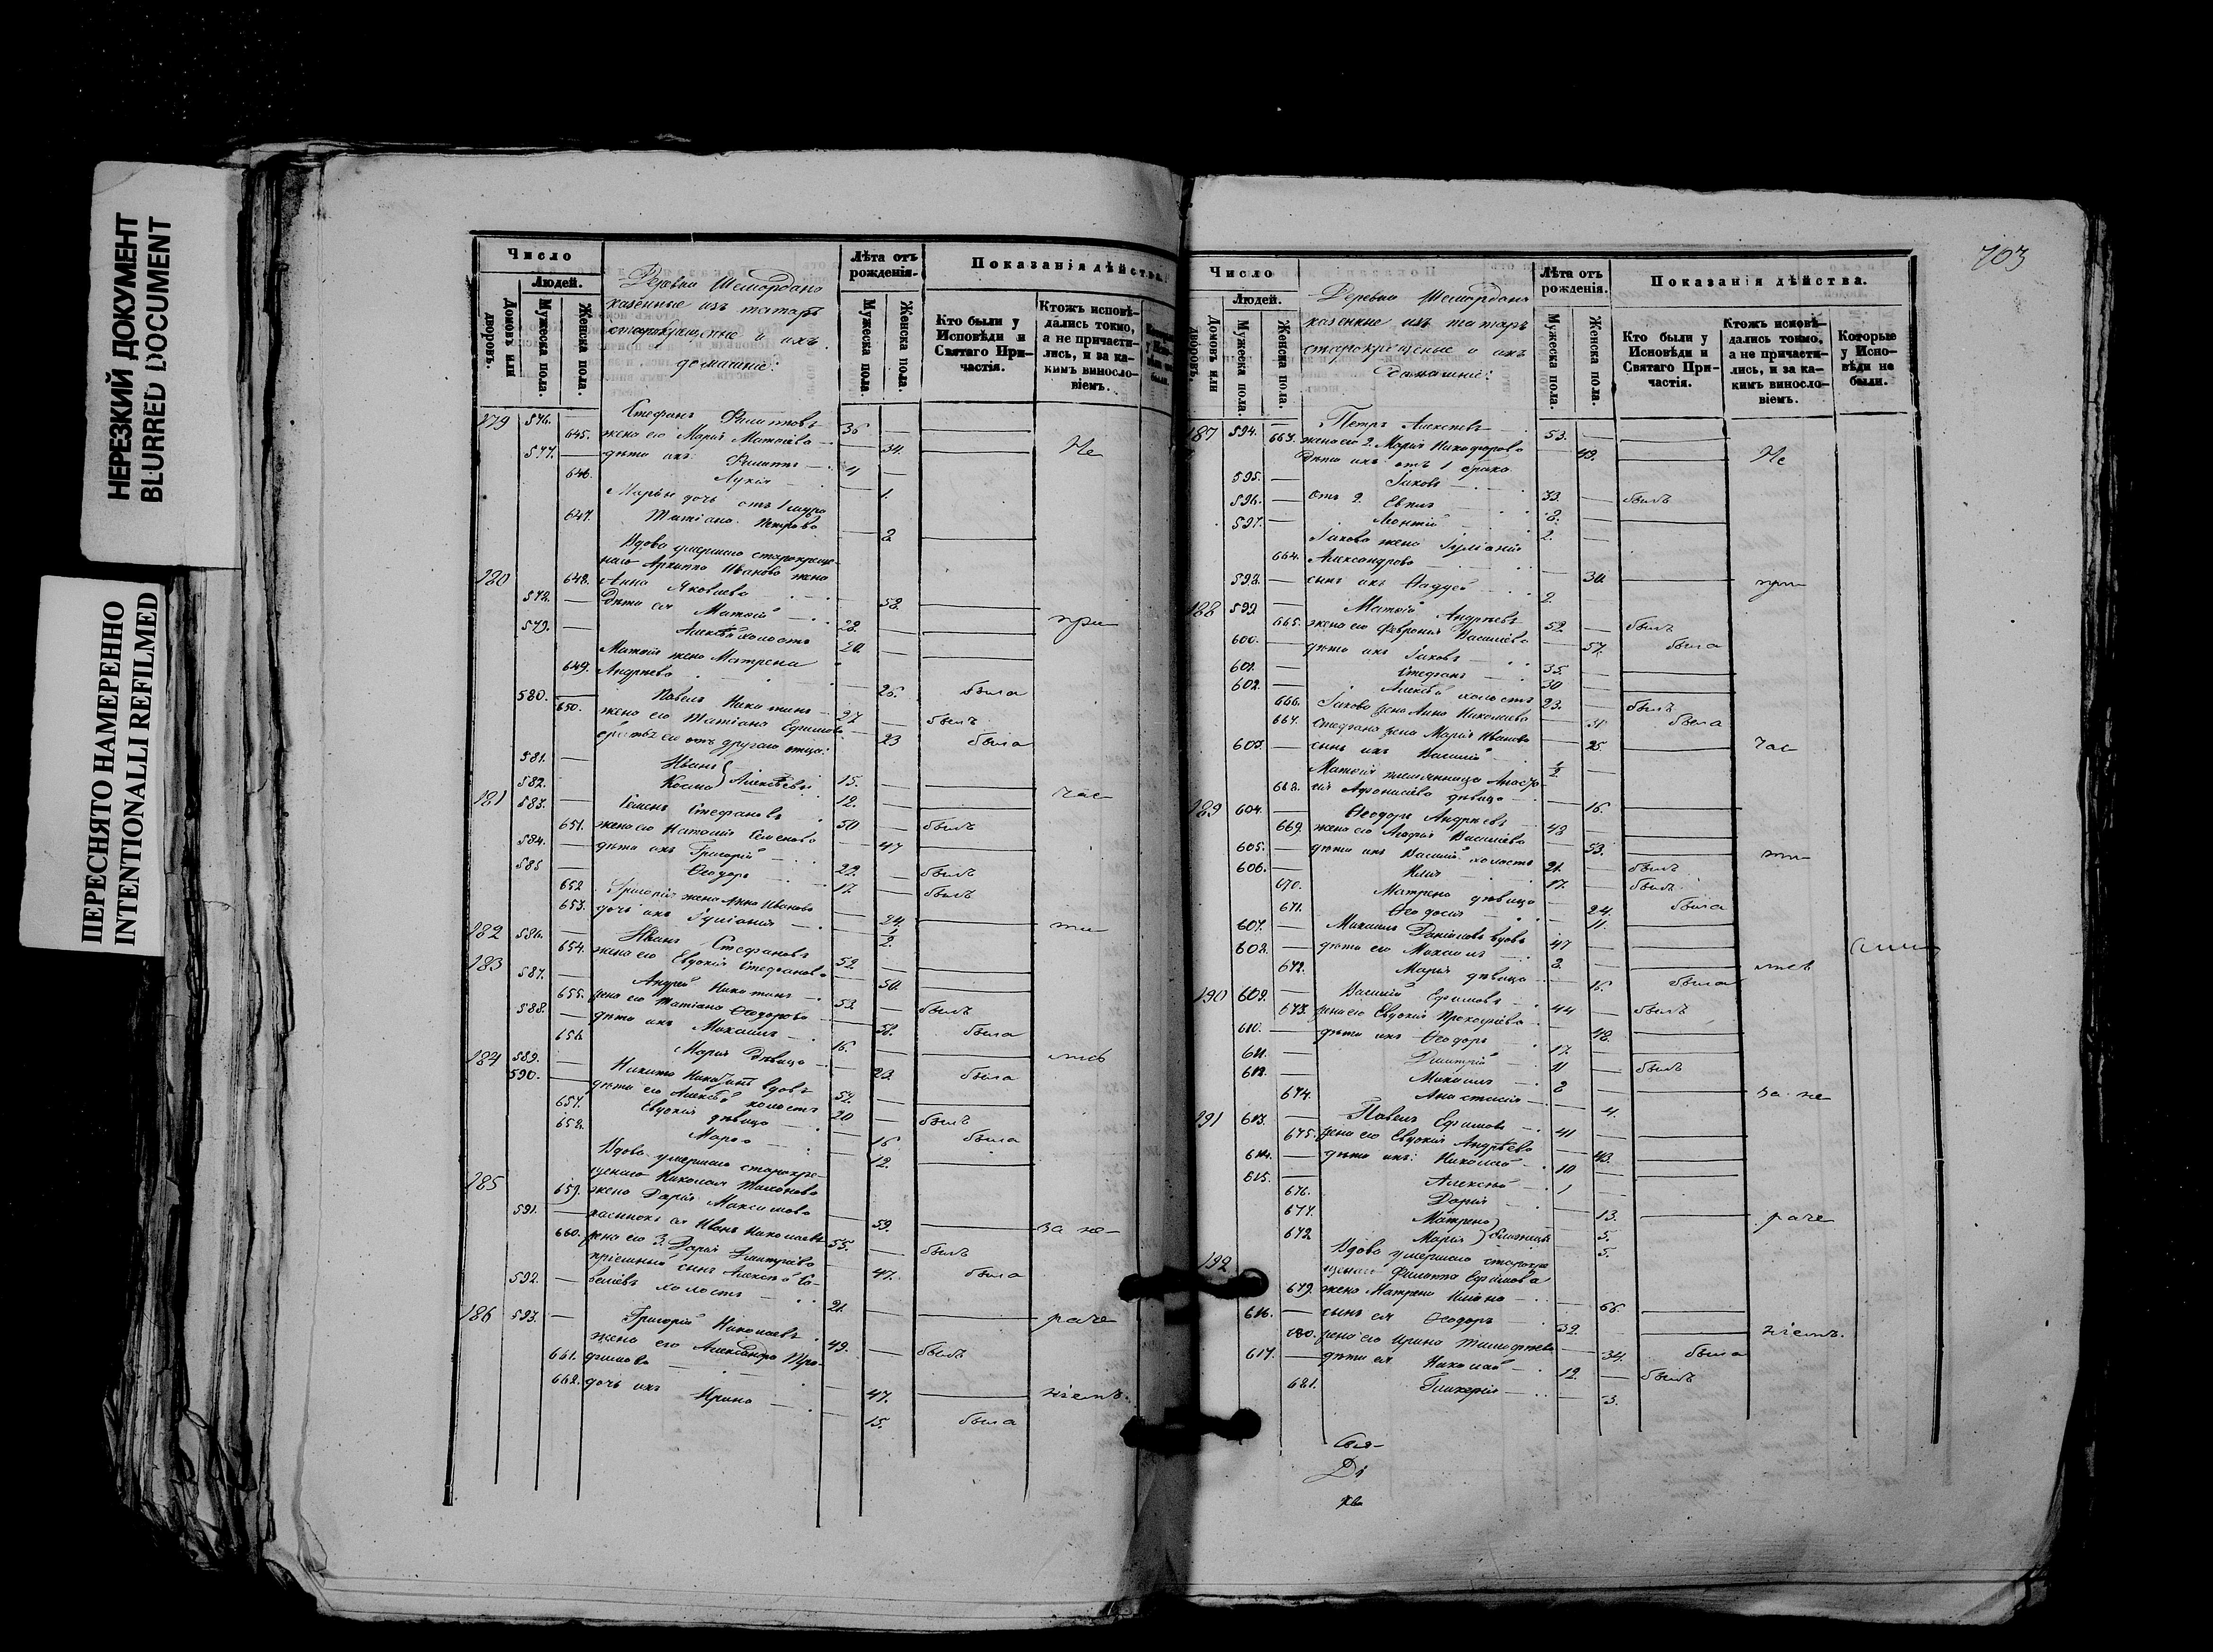 НЕРЕЗКИЙ ДОКУМЕНТ
BLURRED DOCUMENT
ПЕРЕСНЯТО НАМЕРЕННО
INTENTIONALLI REFILMED
Число
Людей.
Домовъ или дворовъ.
Мужеска пола.
Женска пола.
казенные изъ татаръ
старокрещеные и ихъ
домашніе:
Лѣта отъ рожденія.
Мужеска пола.
Женска пола.
Показанія дѣйства.
Кто были у Исповѣди и Святаго Причастія.
Ктожъ исповѣдались токмо, а не причастились, и за какимъ винословіемъ.
179 576. Стефанъ Филипповъ 36
645. жена его Марія Матвѣева 34. Не
577. дѣти ихъ: Филиппъ 4
646. Лукія 1.
Марьи дочь отъ 1 мужа
647. Татіана Петрова 2
Вдова умершаго старокреще-
наго Архиппа Иванова жена
180 648. Анна Яковлева 58.
578. дѣти ея Матвѣй 28. при
579. Алексѣй холостъ 20.
Матвѣя жена Матрена
649. Андреева 26. была
580. Павелъ Никитинъ 27 былъ
650. жена его Татіана Ефимова 23 была
братья его отъ другаго отца:
581. Иванъ 15.
582. Косма } Алексѣевы 12. час
181 583. Семенъ Стефановъ 50 былъ
651. жена его Наталія Семенова 47
584. дѣти ихъ Григорій 22. былъ
585 Ѳеодоръ 17. былъ
652 Григорія жена Анна Иванова 24. ти
653. дочь ихъ Іуліанія ½.
182 586. Иванъ Стефановъ 52.
654. жена его Евдокія Стефанова 50.
183 587. Андрей Никитинъ 53 былъ
655. жена его Татіана Ѳеодорова 58. была
588. дѣти ихъ Михаилъ 16.
656. Марія дѣвица 23. была
184 589. Никита Никитинъ вдовъ 52.
590. дѣти его Алексѣй холостъ 20 былъ
657. Евдокія дѣвица 16 была
658. Марѳа 12.
Вдова умершаго старокре-
щенаго Николая Тихонова
185 659. жена Дарія Максимова 59. за не-
591. пасынокъ ея Иванъ Николаевъ 55. былъ
660. жена его 3. Дарія Дмитріева 47. была
592. пріемный сынъ Алексѣй Са-
велиевъ холостъ 21. раче
186 593. Григорій Николаевъ 49. былъ
жена его Александра Тро-
661. фимова 47. ніемъ.
662. дочь ихъ Ирина 15. была
703
Число
Людей.
Домовъ или дворовъ.
Мужеска пола.
Женска пола.
Деревни Шемордана
казенные изъ татаръ
старокрещеные и ихъ
домашніе:
Лѣта отъ рожденія.
Мужеска пола.
Женска пола.
Показанія дѣйства.
Кто были у Исповѣди и Святаго Причастія.
Ктожъ исповѣдались токмо, а не причастились, и за какимъ винословіемъ.
Которые у Исповѣди не были.
187 594. Петръ Алексѣевъ 53.
663. жена его 2. Марія Никифорова 49. Не
дѣти ихъ отъ 1 брака
595. Іаковъ 33. былъ
596. отъ 2. Евплъ 8.
597. Леонтій 2.
Іакова жена Іуліанія
664. Александрова 30. при
598. сынъ ихъ Ѳаддей 2.
188 599 Матвѣй Андреевъ 52 былъ
665. жена его Февронія Василіева 57. была
600. дѣти ихъ Іаковъ 35.
601. Стефанъ 30
602. Алексѣй холостъ 23. былъ
666. Іакова жена Анна Николаева 31. была
667. Стефана жена Марія Иванова 25. час
603. сынъ ихъ Василій ½
Матвѣя племянница Анаста-
668. сія Афонасіева дѣвица 16.
189 604. Ѳеодоръ Андреевъ 48
669. жена его Агафія Василіева 53. ти
605. дѣти ихъ Василій холостъ 21. былъ
606. Илья 17. былъ
670. Матрена дѣвица 24. была
671. Ѳеодосія 11.
607. Михаилъ Даниловъ вдовъ 47
608. дѣти его Максимъ 8. лись
672. Марія дѣвица 16. была
190 609. Василій Ефимовъ 44 былъ
673. жена его Евдокія Прокофіева 48.
610. дѣти ихъ Ѳеодоръ 17.
611. Дмитрій 11 былъ
612. Михаилъ 8 за не
674. Анастасія 4.
191 613. Павелъ Ефимовъ 41
675. жена его Евдокія Андреева 43.
614. дѣти ихъ: Николай 10
615. Алексѣй 1
676. Дарія 13. раче
677. Матрена 5.
678 Марія } близнецы 5.
192 Вдова умершаго старокре
щенаго Филиппа Ефимова
679. жена Матрена Ильина 66.
616. сынъ ея Ѳеодоръ 32. ніемъ.
680. жена его Ирина Тимофеева 34. была
617. дѣти ея Николай 12. былъ
681. Гликерія 3.